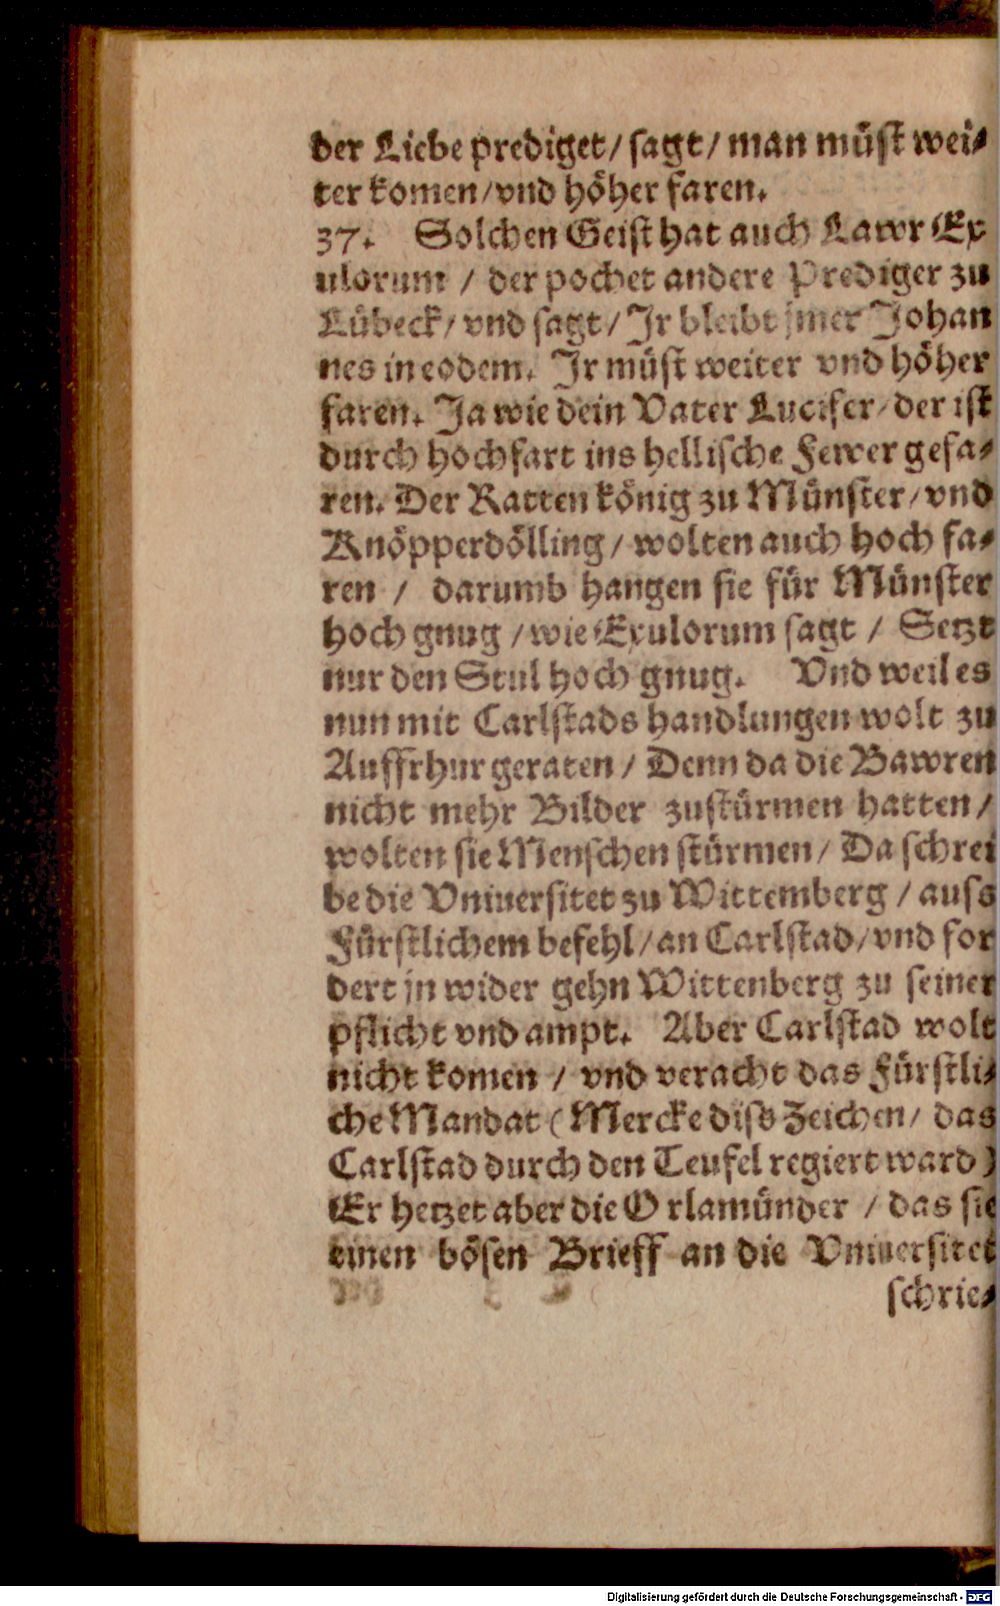 der Liebe prediget/ sagt/ man müst wei⸗
ter komen/vnd höher faren.
37. Solchen Geist hat auch Lawr Ex
ulorum / der pochet andere Prediger zu
Lübeck/ vnd sagt/ Jr bleibt jmer Johan
nes in eodem. Jr müst weiter vnd höher
faren. Ja wie dein Vater Lucifer/ der ist
durch hochfart ins hellische Fewer gefa⸗
ren. Der Ratten könig zu Münster/ vnd
Knöpperdölling/ wolten auch hoch fa⸗
ren / darumb hangen sie für Münster
hoch gnug /wie Exulorum sagt / Setzt
nur den Stul hoch gnug. Vnd weil es
nun mit Carlstads handlungen wolt zu
Auffrhur geraten / Denn da die Bawren
nicht mehr Bilder zustürmen hatten/
wolten sie Menschen stürmen/ Da schrei
be die Vniuersitet zu Wittemberg / auss
Fürstlichem befehl/an Carlstad/vnd for
dert jn wider gehn Wittenberg zu seiner
pflicht vnd ampt. Aber Carlstad wolt
nicht komen / vnd veracht das Fürstli⸗
che Mandat (Mercke diss Zeichen/ das
Carlstad durch den Teufel regiert ward)
Er hetzet aber die Orlamünder / das sie
einen bösen Brieff an die Vniuersitet
schrie⸗
Digitalisierung gefördert durch die Deutsche Forschungsgemeinschaft - DFG